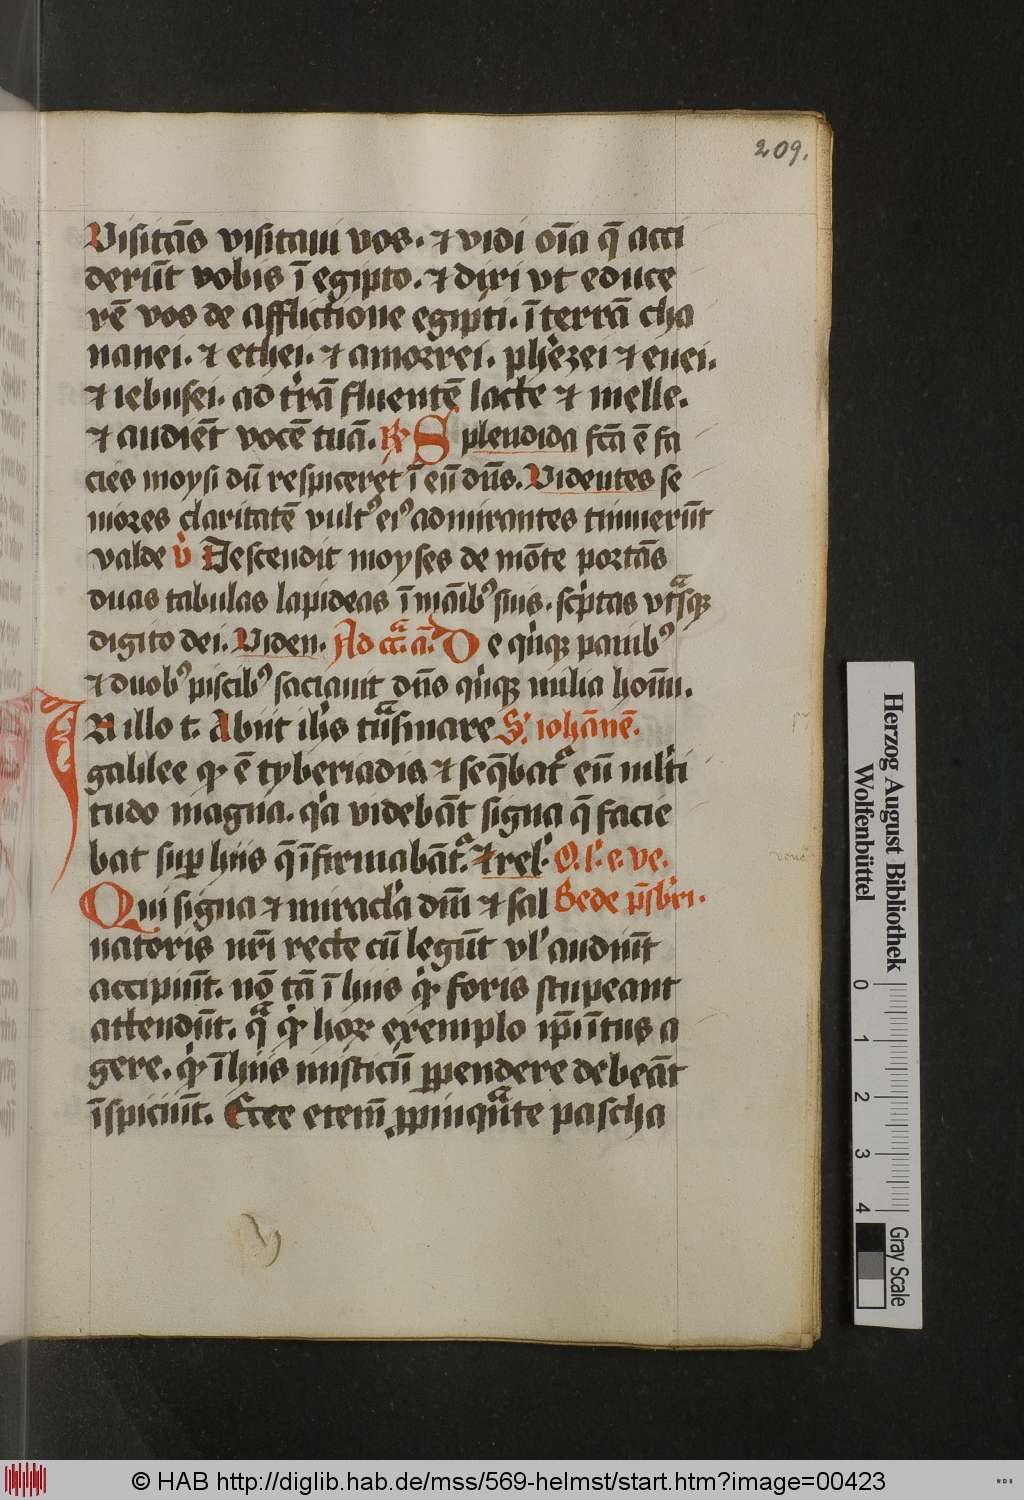 209.
Visitās visitaui vos. ⁊ vidi oīa q̄ acci
derūt vobis ī egipto. ⁊ dixi vt educe
rē vos de afflictione egipti. ī terrā cha
nanei. ⁊ ethei. ⁊ amorrei. pherezei ⁊ euei.
⁊ iebusei. ad trā fluentē lacte ⁊ melle.
⁊ audiēt vocē tuā. ℟ Splendida fcā ē fa
cies moysi dū respiceret ī eū dn̄s. Videntes se
niores claritatē vultꝰ eiꝰ admirantes timuerūt
valde v̇ Descendit moyses de mōte portās
duas tabulas lapideas ī māibꝰ suis. scptas vtsqꝫ
digito dei. Viden. Ad cc̄ a. De qinqꝫ panibꝰ
⁊ duobꝰ piscibꝰ saciauit dn̄s qinqꝫ milia homī.
IN illo t. Abiit ihs trāsmare S. iohannē.
galilee qͥ ē tyberiadis ⁊ seq̄bat eū mlti
tudo magna. qia videbāt signa q̄ facie
bat sup hiis q̄ īfirmabāt. ⁊ rel. O. l. e. ve.
Qui signa ⁊ miracla dn̄i ⁊ sal Bede p̄sbri.
uatoris nr̄i recte cū legūt vl audiūt
accipiūt. nō tā ī hiis qͥ foris stupeant
attendūt. qͣ qͥ hor exemplo ip̄i ītus a
gere. qͥ ī hiis misticū ꝑpendere debeāt
īspiciūt. Ecce etem̄ ꝓpinquāte pascha
Herzog August Bibliothek
Wolfenbüttel
0 1 2 3 4
Gray Scale
© HAB http://diglib.hab.de/mss/569-helmst/start.htm?image=00423